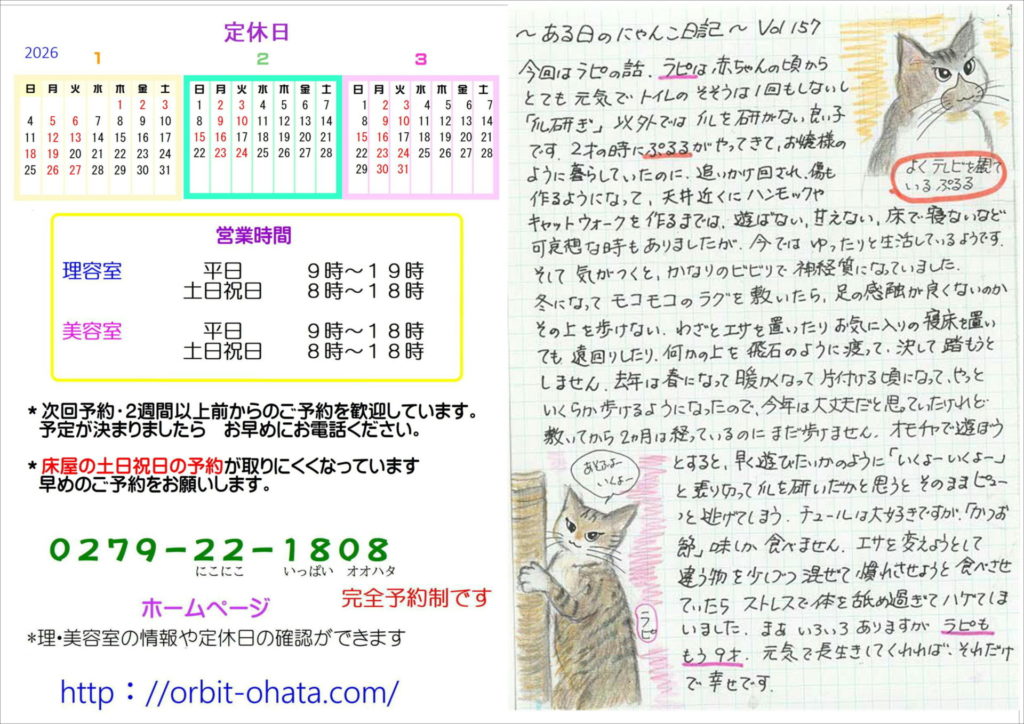 定休日
2026
1
日 月 火 水 木 金 土
1 2 3
4 5 6 7 8 9 10
11 12 13 14 15 16 17
18 19 20 21 22 23 24
25 26 27 28 29 30 31
2
日 月 火 水 木 金 土
1 2 3 4 5 6 7
8 9 10 11 12 13 14
15 16 17 18 19 20 21
22 23 24 25 26 27 28
3
日 月 火 水 木 金 土
1 2 3 4 5 6 7
8 9 10 11 12 13 14
15 16 17 18 19 20 21
22 23 24 25 26 27 28
29 30 31
営業時間
理容室 平日 9時~19時
土日祝日 8時~18時
美容室 平日 9時~18時
土日祝日 8時~18時
*次回予約・2週間以上前からのご予約を歓迎しています。
予定が決まりましたら お早めにお電話ください。
*床屋の土日祝日の予約が取りにくくなっています
早めのご予約をお願いします。
0279-22-1808
にこにこ いっぱい オオハタ
完全予約制です
ホームページ
*理・美容室の情報や定休日の確認ができます
http://orbit-ohata.com/
~ある日のにゃんこ日記~ Vol 157
今回はラピの話. ラピは赤ちゃんの頃から
とても元気でトイレのそそうは1回もしないし
「爪研ぎ」以外では爪を研がない良い子
です. 2才の時にぷるるがやってきて, お嬢様の
ように暮らしていたのに, 追いかけ回され, 傷も
作るようになって, 天井近くにハンモックや
キャットウォークを作るまでは, 遊ばない, 甘えない, 床で寝ないなど
可哀想な時もありましたが, 今では ゆったりと生活しているようです.
そして 気がつくと, かなりのビビリで 神経質になっていました.
冬になって モコモコのラグを敷いたら, 足の感触が良くないのか
その上を歩けない. わざとエサを置いたりお気に入りの寝床を置い
ても 遠回りしたり, 何かの上を飛石のように渡って, 決して踏もうと
しません. 去年は春になって暖かくなって片付ける頃になって, やっと
いくらか歩けるようになったので, 今年は大丈夫だと思っていたけれど
敷いてから2ヵ月は経っているのにまだ歩けません. オモチャで遊ぼう
とすると, 早く遊びたいかのように「いくよーいくよー」
と張り切って爪を研いだかと思うと そのままピュー
っと逃げてしまう. チュールは大好きですが,「かつお
節」味しか 食べません. エサを変えようとして
違う物を少しづつ混ぜて慣れさせようと食べさせ
ていたら ストレスで体を舐め過ぎてハゲてしま
いました. まあ いろいろありますが ラピも
もう9才. 元気で長生きしてくれれば, それだけ
で幸せです.
よくテレビを観て
いる ぷるる
あそぶよー
いくよー
ラピ